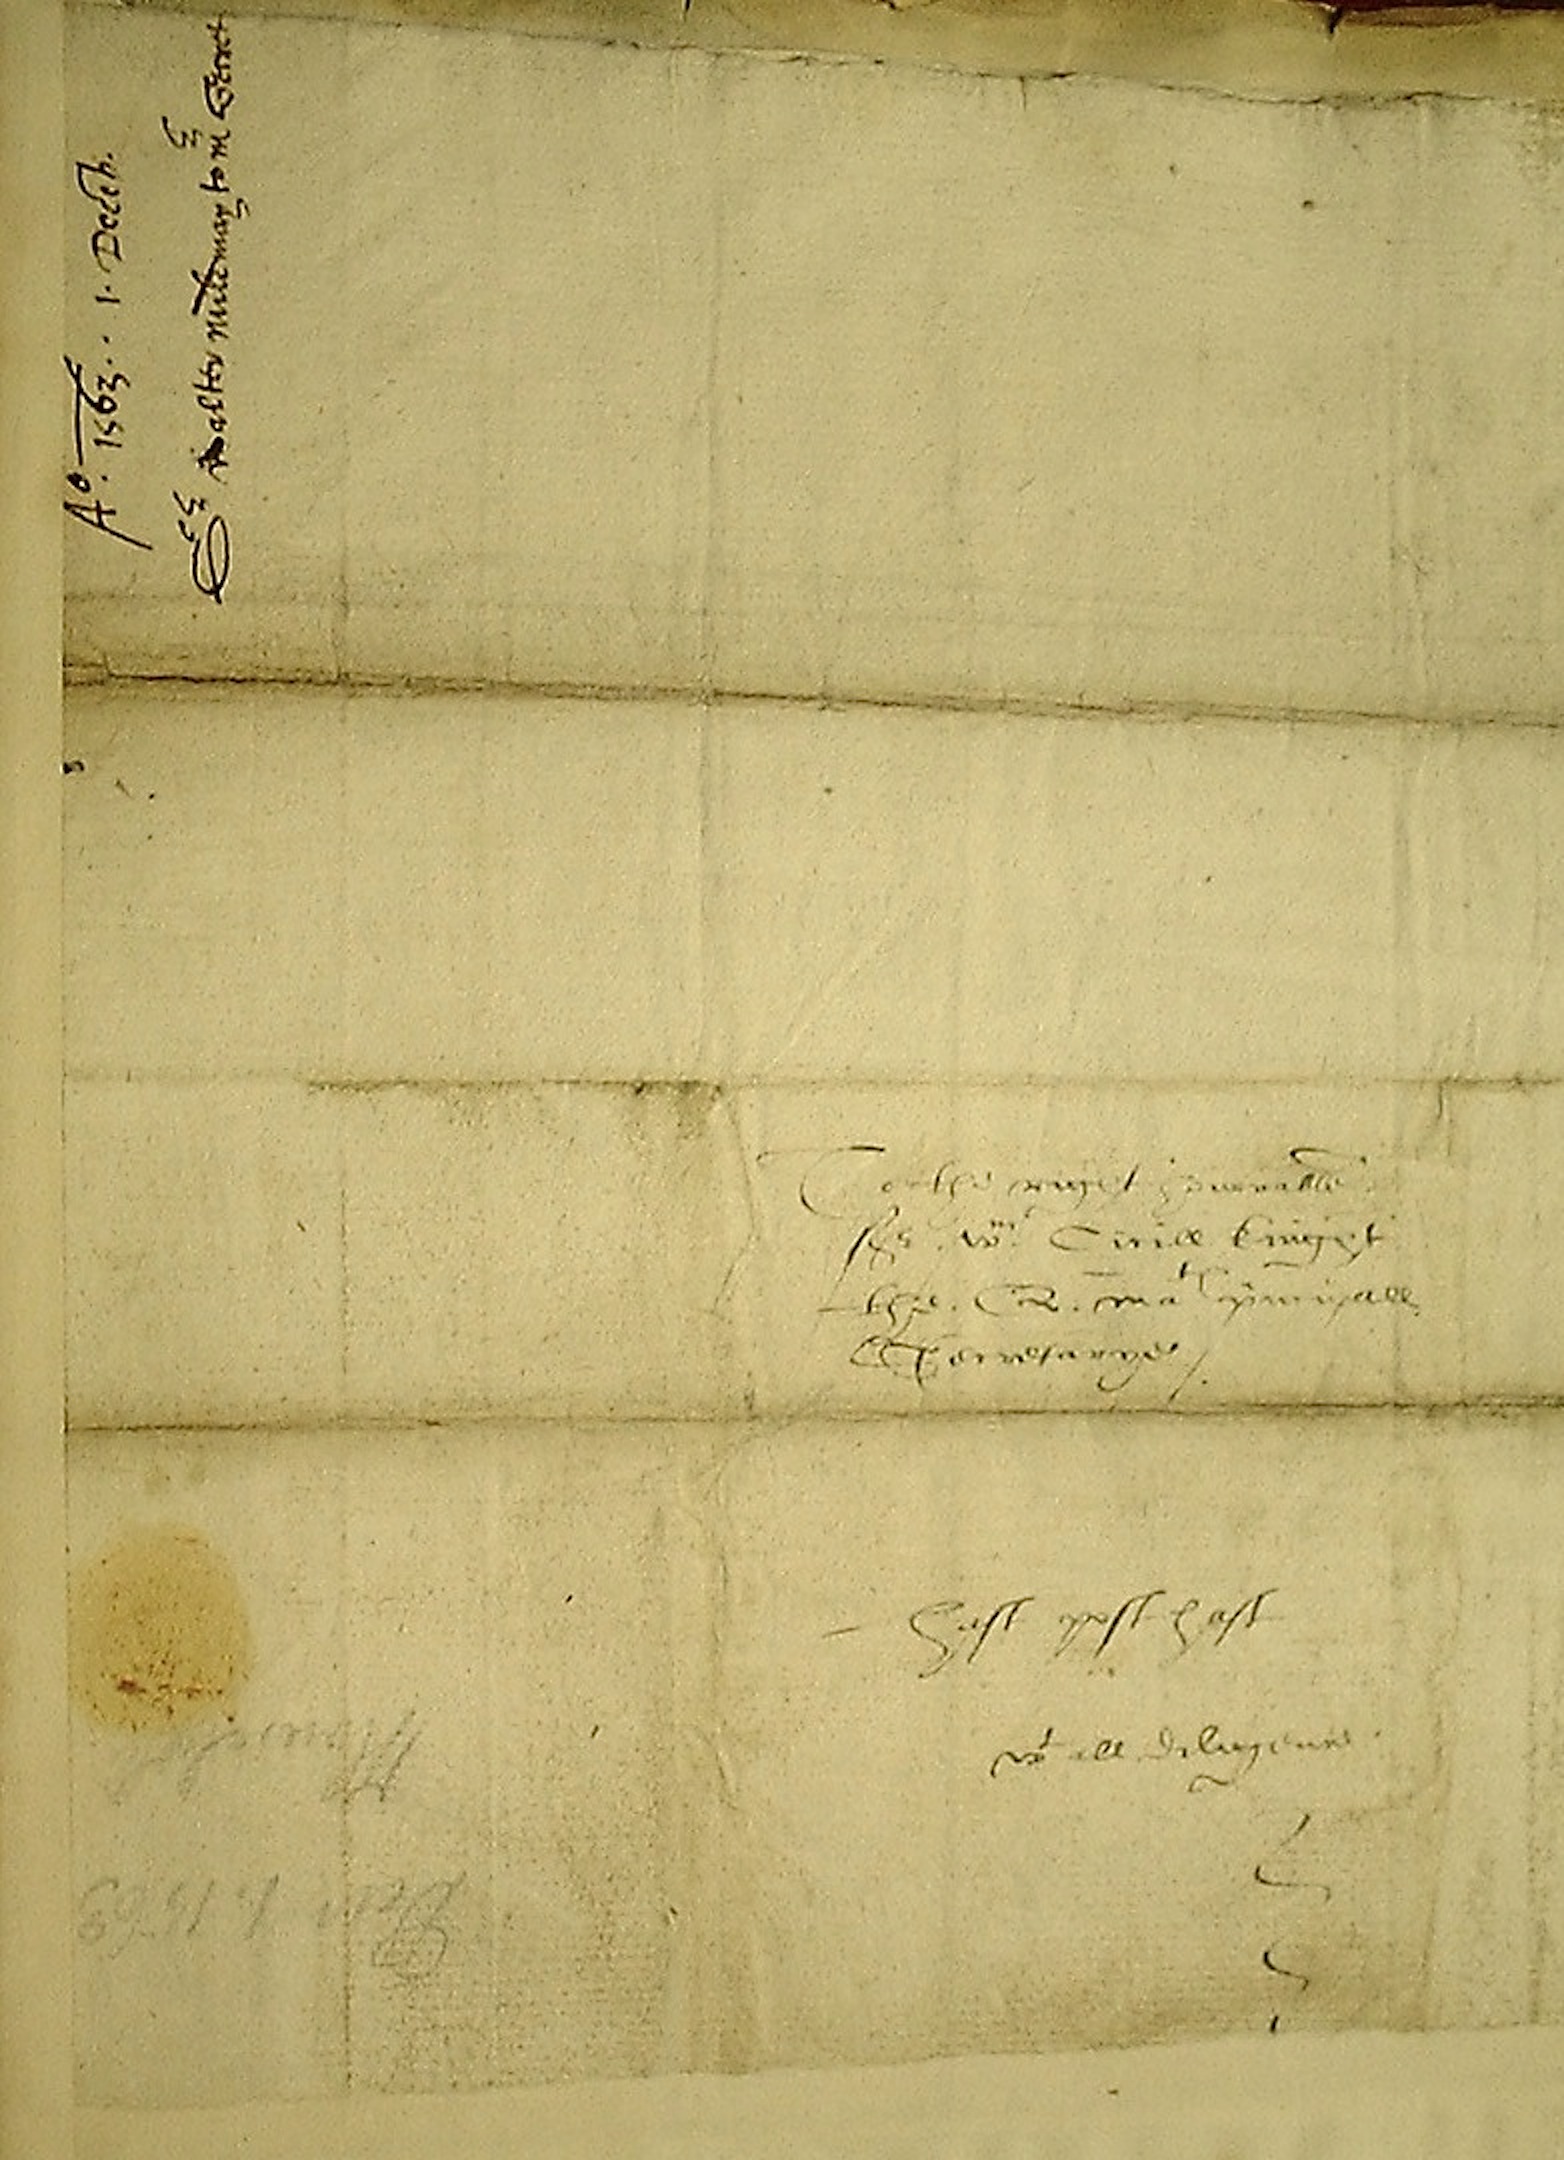 Ao. 1563. . 1. Decēb.
Sr walter mildmay to mr Secret
To the right honorable
Sr. Wm. Cicill knight
the. Q. mats principall
Secretarye /.
hast post hast
wt all diligence
Decr 1. 1563